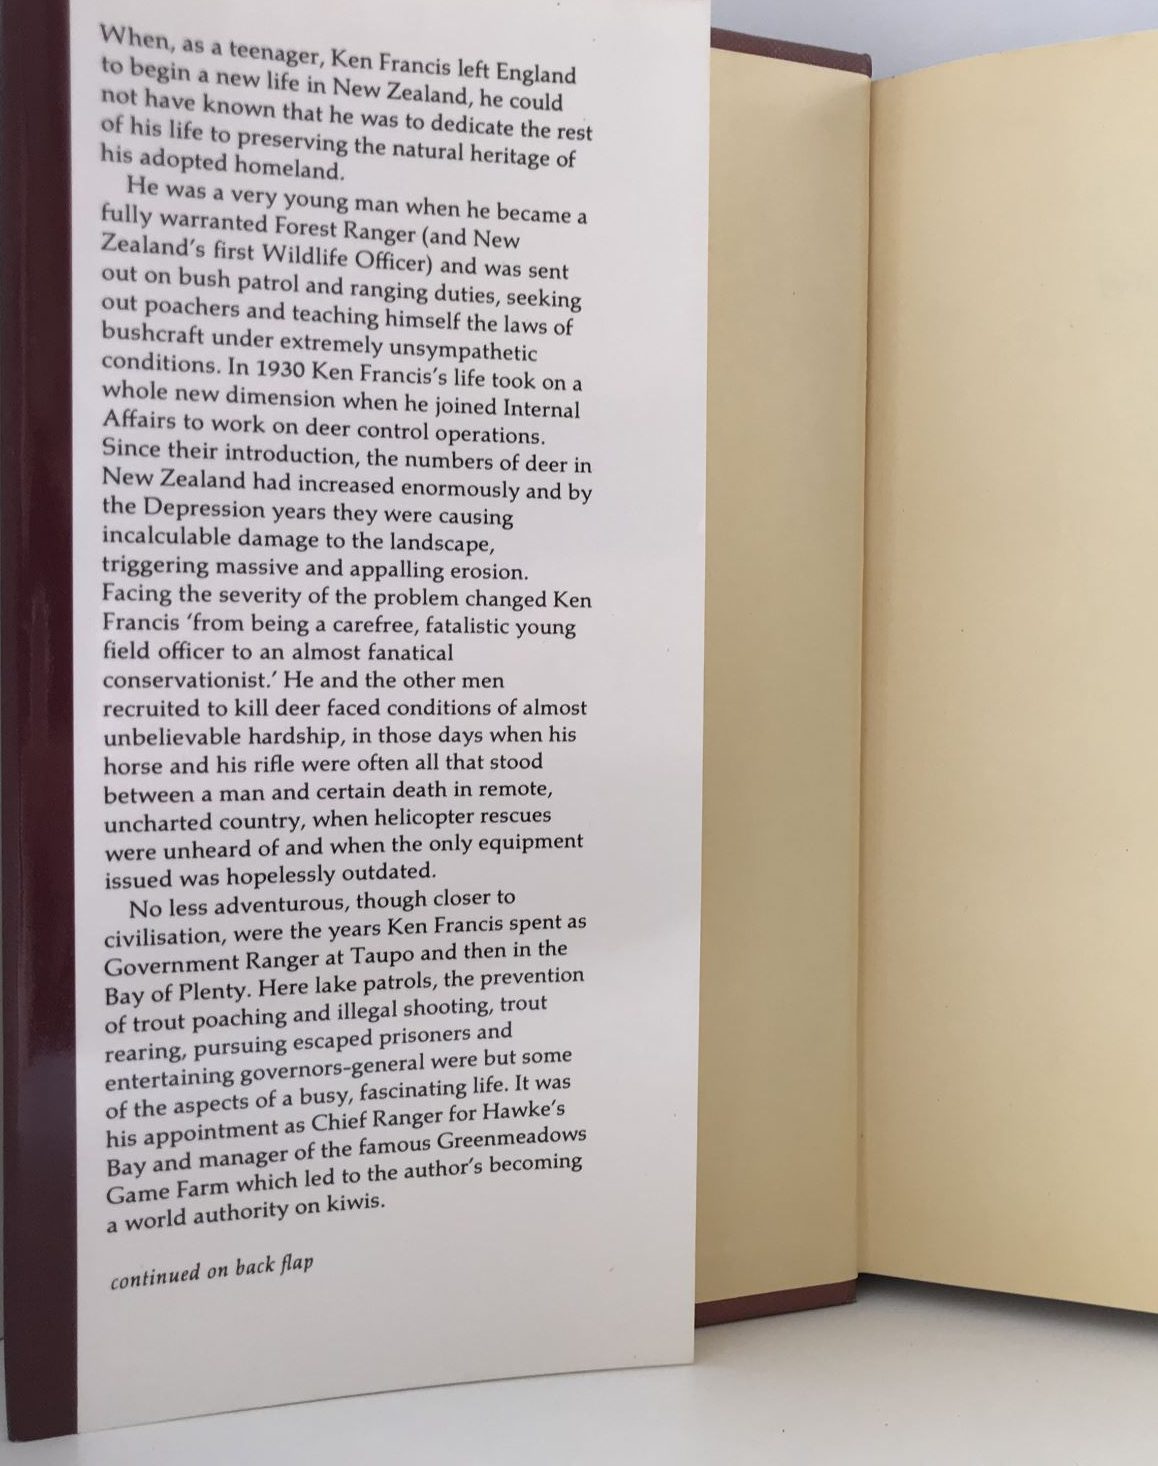 When, as a teenager, Ken Francis left England
to begin a new life in New Zealand, he could
not have known that he was to dedicate the rest
of his life to preserving the natural heritage of
his adopted homeland.
He was a very young man when he became a
fully warranted Forest Ranger (and New
Zealand's first Wildlife Officer) and was sent
out on bush patrol and ranging duties, seeking
out poachers and teaching himself the laws of
bushcraft under extremely unsympathetic
conditions. In 1930 Ken Francis's life took on a
whole new dimension when he joined Internal
Affairs to work on deer control operations.
Since their introduction, the numbers of deer in
New Zealand had increased enormously and by
the Depression years they were causing
incalculable damage to the landscape,
triggering massive and appalling erosion.
Facing the severity of the problem changed Ken
Francis 'from being a carefree, fatalistic young
field officer to an almost fanatical
conservationist.' He and the other men
recruited to kill deer faced conditions of almost
unbelievable hardship, in those days when his
horse and his rifle were often all that stood
between a man and certain death in remote,
uncharted country, when helicopter rescues
were unheard of and when the only equipment
issued was hopelessly outdated.
No less adventurous, though closer to
civilisation, were the years Ken Francis spent as
Government Ranger at Taupo and then in the
Bay of Plenty. Here lake patrols, the prevention
of trout poaching and illegal shooting, trout
rearing, pursuing escaped prisoners and
entertaining governors-general were but some
of the aspects of a busy, fascinating life. It was
his appointment as Chief Ranger for Hawke's
Bay and manager of the famous Greenmeadows
Game Farm which led to the author's becoming
a world authority on kiwis.
continued on back flap